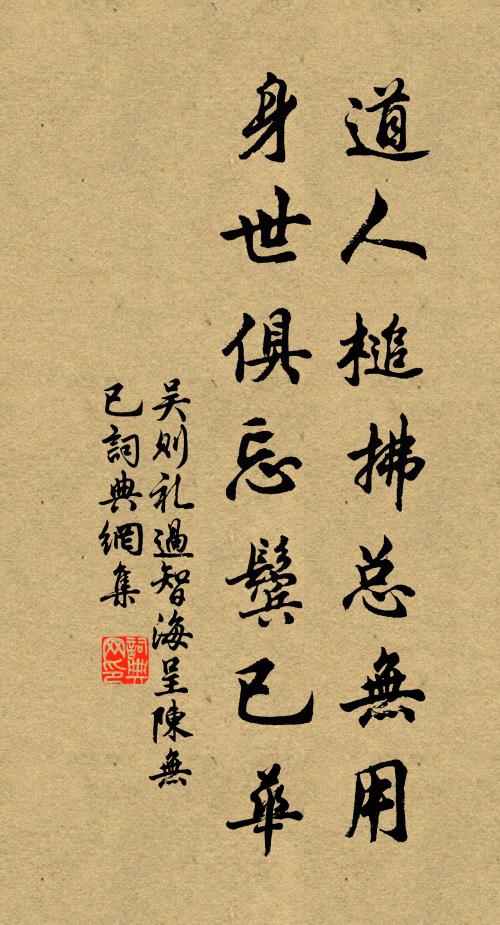 道人槌拂总無用
身世俱忘鬓已華
吴则礼過智海呈陳無
已詞典網集
詞典
网印